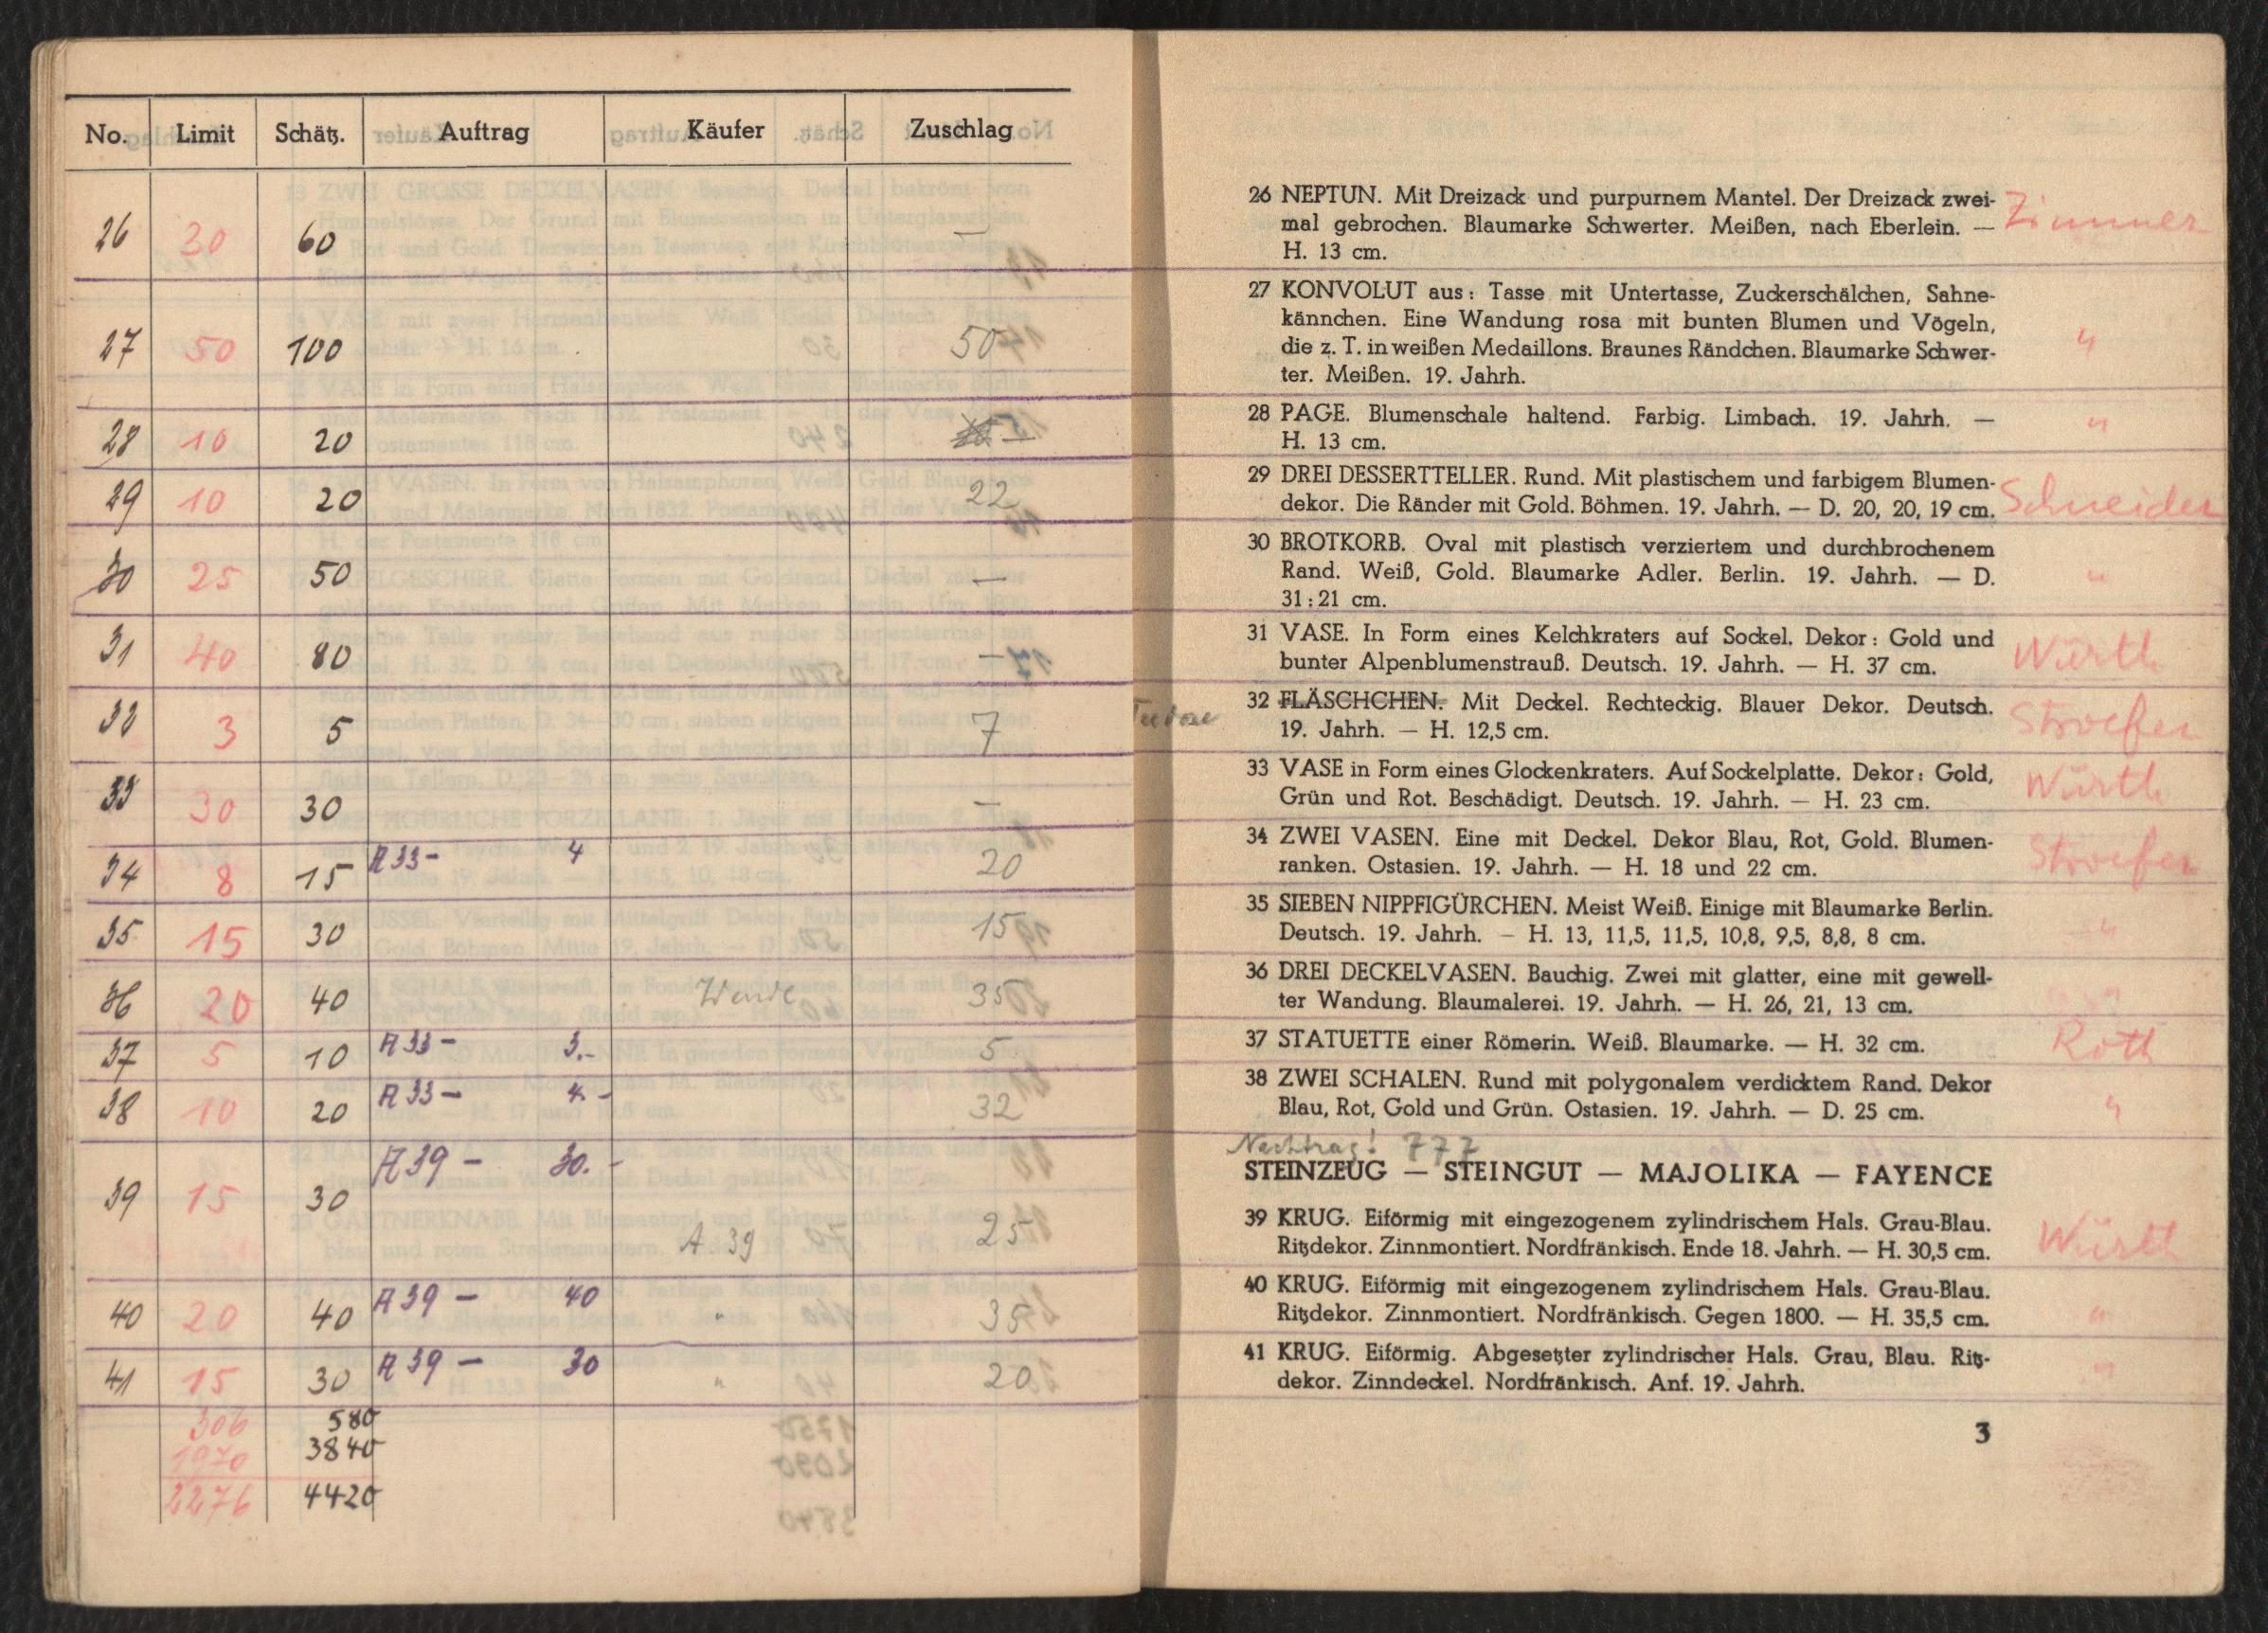 No. Limit Schätz. Auftrag Käufer Zuschlag
26 30 60 —
27 50 100 50
28 10 20 —
29 10 20 22
30 25 50 —
31 40 80 —
32 3 5 7
33 30 30 —
34 8 15 A 33 – 4 20
35 15 30 15
36 20 40 35
37 5 10 A 33 – 3.- 5
38 10 20 A 33 – 4.- 32
A 39 – 30.-
39 15 30
A. 39 25
40 20 40 A 39 – 40 " 35
41 15 30 A 39 – 30 " 20
306 580
1970 3840
2276 4420
26 NEPTUN. Mit Dreizack und purpurnem Mantel. Der Dreizack zwei- Zimmer
mal gebrochen. Blaumarke Schwerter. Meißen, nach Eberlein. —
H. 13 cm.
27 KONVOLUT aus: Tasse mit Untertasse, Zuckerschälchen, Sahne-
kännchen. Eine Wandung rosa mit bunten Blumen und Vögeln, "
die z. T. in weißen Medaillons. Braunes Rändchen. Blaumarke Schwer-
ter. Meißen. 19. Jahrh.
28 PAGE. Blumenschale haltend. Farbig. Limbach. 19. Jahrh. — "
H. 13 cm.
29 DREI DESSERTTELLER. Rund. Mit plastischem und farbigem Blumen- Schneider
dekor. Die Ränder mit Gold. Böhmen. 19. Jahrh. — D. 20, 20, 19 cm.
30 BROTKORB. Oval mit plastisch verziertem und durchbrochenem
Rand. Weiß, Gold. Blaumarke Adler. Berlin. 19. Jahrh. — D. "
31:21 cm.
31 VASE. In Form eines Kelchkraters auf Sockel. Dekor: Gold und Würth
bunter Alpenblumenstrauß. Deutsch. 19. Jahrh. — H. 37 cm.
32 FLÄSCHCHEN. Mit Deckel. Rechteckig. Blauer Dekor. Deutsch. Stroefer
19. Jahrh. — H. 12,5 cm.
33 VASE in Form eines Glockenkraters. Auf Sockelplatte. Dekor: Gold, Würth
Grün und Rot. Beschädigt. Deutsch. 19. Jahrh. — H. 23 cm.
34 ZWEI VASEN. Eine mit Deckel. Dekor Blau, Rot, Gold. Blumen- Stroefer
ranken. Ostasien. 19. Jahrh. — H. 18 und 22 cm.
35 SIEBEN NIPPFIGÜRCHEN. Meist Weiß. Einige mit Blaumarke Berlin.
Deutsch. 19. Jahrh. — H. 13, 11,5, 11,5, 10,8, 9,5, 8,8, 8 cm. "
36 DREI DECKELVASEN. Bauchig. Zwei mit glatter, eine mit gewell-
ter Wandung. Blaumalerei. 19. Jahrh. — H. 26, 21, 13 cm. "
37 STATUETTE einer Römerin. Weiß. Blaumarke. — H. 32 cm. Roth
38 ZWEI SCHALEN. Rund mit polygonalem verdicktem Rand. Dekor
Blau, Rot, Gold und Grün. Ostasien. 19. Jahrh. — D. 25 cm. "
Nachtrag! 777
STEINZEUG — STEINGUT — MAJOLIKA — FAYENCE
39 KRUG. Eiförmig mit eingezogenem zylindrischem Hals. Grau-Blau. Würth
Ritzdekor. Zinnmontiert. Nordfränkisch. Ende 18. Jahrh. — H. 30,5 cm.
40 KRUG. Eiförmig mit eingezogenem zylindrischem Hals. Grau-Blau.
Ritzdekor. Zinnmontiert. Nordfränkisch. Gegen 1800. — H. 35,5 cm. "
41 KRUG. Eiförmig. Abgesetzter zylindrischer Hals. Grau, Blau. Ritz- "
dekor. Zinndeckel. Nordfränkisch. Anf. 19. Jahrh.
3